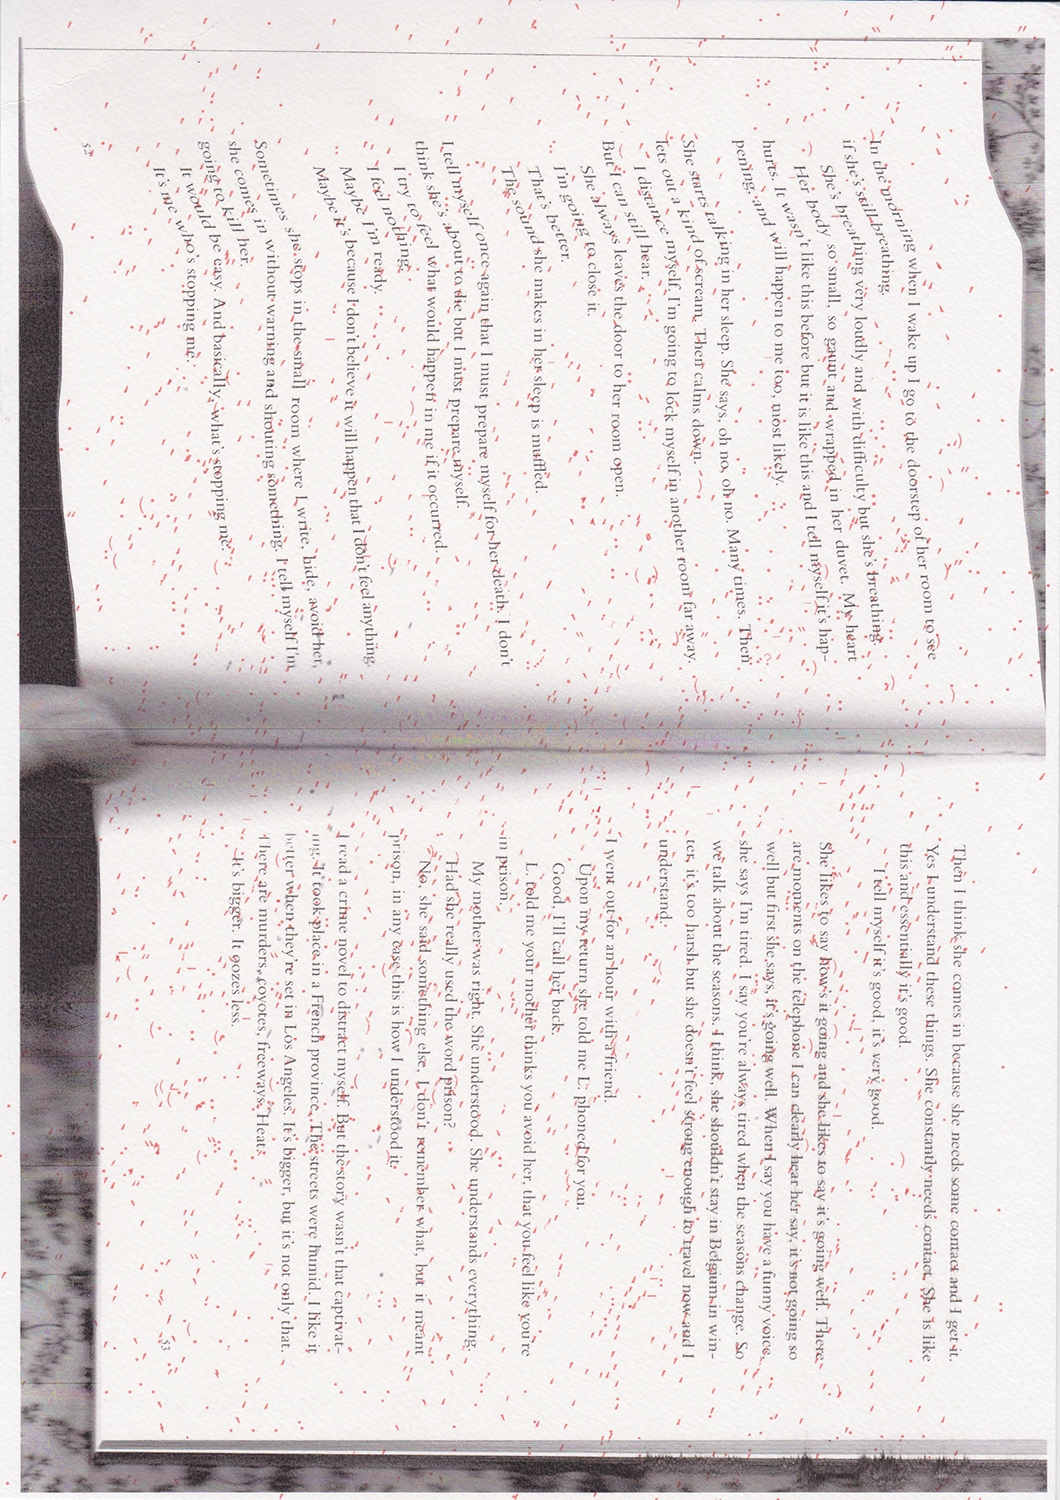 In the morning when I wake up I go to the doorstep of her room to see
if she's still breathing.
She's breathing very loudly and with difficulty but she's breathing.
Her body so small, so gaunt and wrapped in her duvet. My heart
hurts. It wasn't like this before but it is like this and I tell myself it's hap-
pening, and will happen to me too, most likely.
She starts talking in her sleep. She says, oh no, oh no. Many times. Then
lets out a kind of scream. Then calms down.
I distance myself, I'm going to lock myself in another room far away.
But I can still hear.
She always leaves the door to her room open.
I'm going to close it.
That's better.
The sound she makes in her sleep is muffled.
I tell myself once again that I must prepare myself for her death. I don't
think she's about to die but I must prepare myself.
I try to feel what would happen in me if it occurred.
I feel nothing.
Maybe I'm ready.
Maybe it's because I don't believe it will happen that I don't feel anything.
Sometimes she stops in the small room where I write, hide, avoid her,
she comes in without warning and shouting something. I tell myself I'm
going to kill her.
It would be easy. And basically, what's stopping me.
It's me who's stopping me.
52
Then I think she comes in because she needs some contact and I get it.
Yes I understand these things. She constantly needs contact. She is like
this and essentially it's good.
I tell myself it's good, it's very good.
She likes to say how's it going and she likes to say it's going well. There
are moments on the telephone I can clearly hear her say, it's not going so
well but first she says, it's going well. When I say you have a funny voice,
she says I'm tired. I say you're always tired when the seasons change. So
we talk about the seasons. I think, she shouldn't stay in Belgium in win-
ter, it's too harsh but she doesn't feel strong enough to travel now and I
understand.
I went out for an hour with a friend.
Upon my return she told me L. phoned for you.
Good, I'll call her back.
L. told me your mother thinks you avoid her, that you feel like you're
in prison.
My mother was right. She understood. She understands everything.
Had she really used the word prison?
No, she said something else, I don't remember what, but it meant
prison, in any case this is how I understood it.
I read a crime novel to distract myself. But the story wasn't that captivat-
ing. It took place in a French province. The streets were humid. I like it
better when they're set in Los Angeles. It's bigger, but it's not only that.
There are murders, coyotes, freeways. Heat.
It's bigger. It oozes less.
53